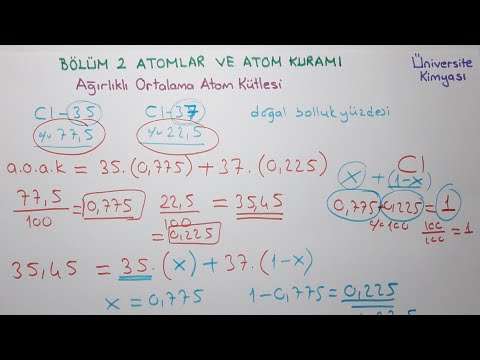 BÖLÜM 2 ATOMLAR VE ATOM KURAMI
Üniversite
Kimyası
Ağırlıklı Ortalama Atom Kütlesi
Cl-35 Cl-37 doğal bolluk yüzdesi
% 77,5 % 22,5
Cl
a.o.a.k = 35.(0,775) + 37.(0,225)
x + (1-x)
77,5/100 = 0,775 22,5/100 = 35,45
0,775 + 0,225 = 1
% 100 100/100 = 1
= 0,225
35,45 = 35.(x) + 37.(1-x)
x = 0,775 1-0,775 = 0,225